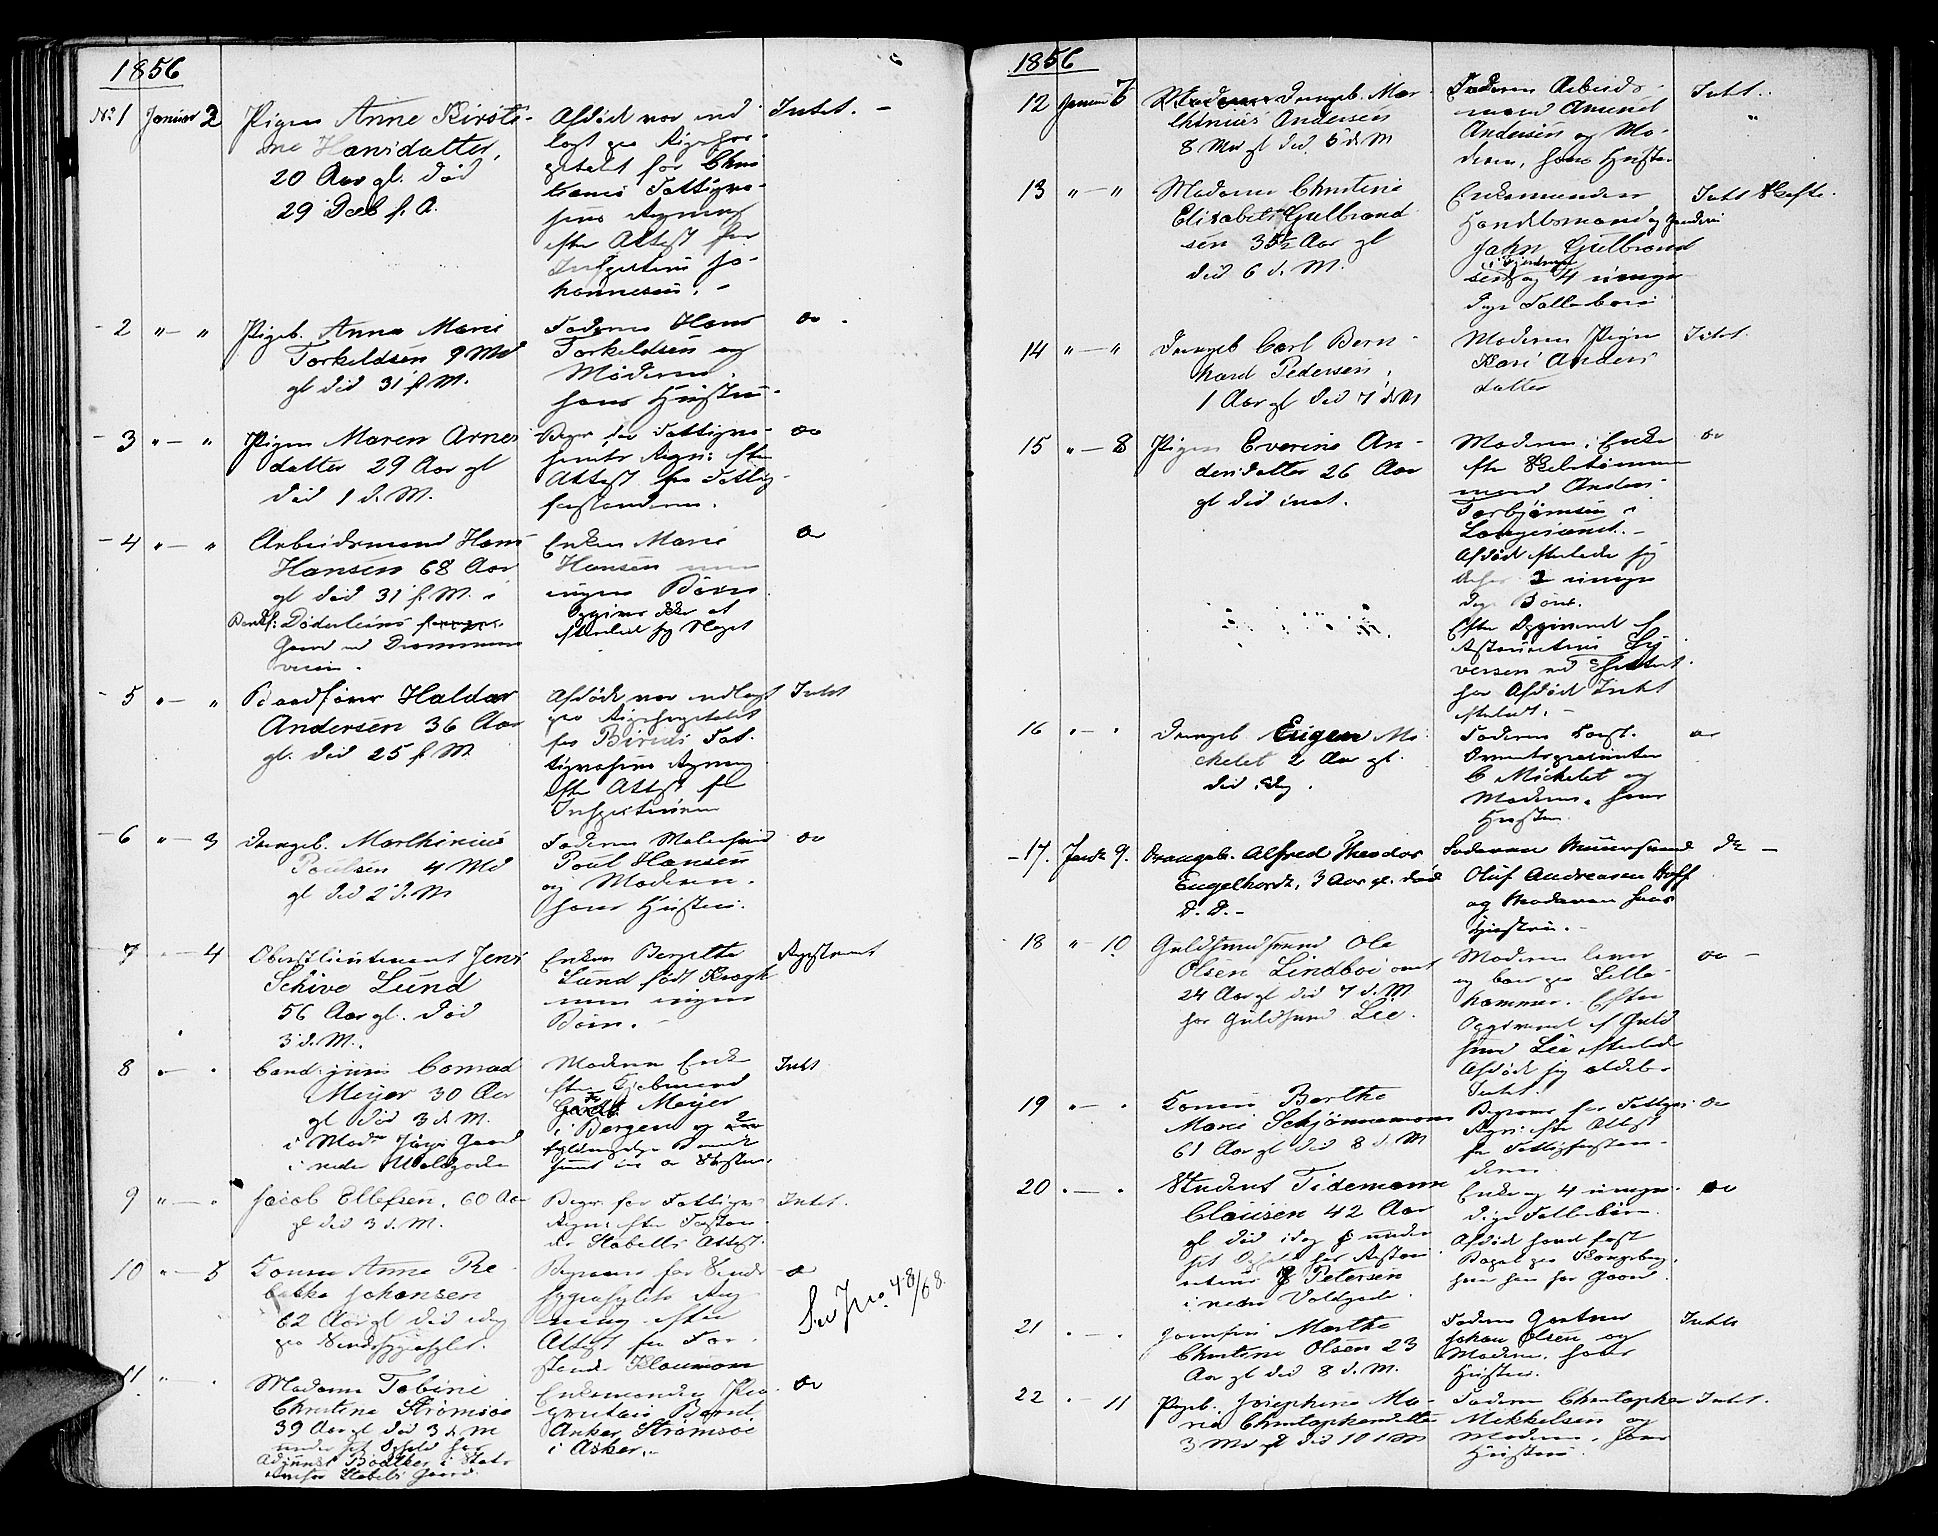 1856
No 1 Januar 2 Pigen Anne Kirsti-
ne Hansdatter,
20 Aar gl. død
29 Dcb f. A.
Afdøde var ind
lagt paa Rigshos-
pitalet for Chri
stianis Fattigvæ-
sens Regning
efter Attest fra
Inspecteur Jo-
hannesen. -
Intet. -
2 " - " Pigeb. Anna Marie
Torkeldsen 9 Md
gl død 31 f. M.
Faderen Hans
Torkeldsen og
Moderen,
hans Hustru.
do -
3 " - " Pigen Maren Arnes
datter 29 Aar gl
død 1 d. M.
Begr. for Fattigvæ-
senets Regn: efter
Attest fra Fattig-
forstanderen.
do
4 " - " Arbeidsmand Hans
Hansen 68 Aar
gl død 31 f. M. i
Døderleins
Gaard ved Drammens
veien.
Enken Marie
Hansen men
ingen Børn
Opgives ikke at
efterlade sig Noget
do
5 " - " Baadfører Haldor
Andersen 36 Aar
gl. død 25 f M.
Afdøde var indlagt
paa Rigshospitalet
for Bireds Fat-
tigvæsens Regning
efter Attest fra
Inspecteuren
Intet
6 " - 3 Drengeb. Marthinius
Poulsen 4 Md
gl død 2 d. M
Faderen Malersvend
Poul Hansen
og Moderen,
hans Hustru.
do
7 " - 4 Oberstlieutenant Jens
Schive Lund
56 Aar gl. død
3 d. M.
Enken Bergitte
Lund født Kragh
men ingen
Børn. -
Registreret
8 " - " Cand: juris Conrad
Meyer 30 Aar
gl død 3 d. M.
i Mad.
Gaard
i nedre Voldgade
Moderen Enke
efter
Meyer
i Bergen og 2
fuldmyndige
Intet
9 " - " Jacob Ellefsen, 60 Aar
gl død 3 d. M.
Begr. for Fattigv.
Regn: efter Forstan-
der Stabells Attest.
Intet.
10 " - 5 Konen Anne Re-
bekka Johansen
62 Aar gl død idag
paa Sindssygeasylet.
Begraves for Sinds-
sygeasylets Reg-
ning efter
Attest fra For-
stander Klaumann
do
See Jno. 48/68.
11 " - " Madame Tobine
Christine Strømsøe
39 Aar gl død 3 d M
under sit Ophold hos
Adjunct i
Stabells Gaard.
Enkemanden Pro-
prietair Bernt
Anker Strømsøe
i Asker. -
do
1856
12 Januar 7 Drengeb. Mar-
thinius Andersen
8 Md gl død 5 d. M
Faderen Arbeids-
mand Amund
Andersen og Mo-
deren, hans Hustru
Intet.
13 " - " Madame Christine
Elisabeth Gulbrand
sen 35½ Aar gl
død 6 d. M.
Enkemanden
Handelsmand
John Gulbrand
sen og 4 umyn
dige Fællesbørn
Intet Skifte.
14 " - " Drengeb Carl Bern-
hard Pedersen,
1 Aar gl død 7 d. M
Moderen Pigen
Kari Anders
datter
Intet.
15 " - 8 Pigen Everine An-
dersdatter 26 Aar
gl død inat.
Moderen, Enke
efter
mand Anders
Torbjørnsen i
Langesund. -
Afdøde efterlader sig
2 umyn
dige Børn.
Efter Opgivende af
Restaurateur Sy
versen ved
har Afdøde Intet
efterladt. -
do
16 " - " Drengeb. Eugen Mi
chelet 2 Aar gl.
død idag.
Faderen
C Michelet og
Moderen, hans
Hustru.
do
17. Jan 9. Drengeb. Alfred Theodor
Engelhardt, 3 Aar gl. død
D. D. -
Faderen Muursvend
Oluf Andreasen Hoff
og Moderen hans
Hustru. -
do -
18 " 10 Guldsmedsvend Ole
Olsen Lindboe omt
24 Aar gl død 7 d. M
hos Guldsmed Lie.
Moderen lever
og boer paa Lille-
hammer. Efter
Opgivende af Guld
smed Lie efterlader
Afdøde sig aldeles
Intet.
do -
19 " - " Konen Berthe
Marie Schjønnemann
61 Aar gl død 8 d. M
Begraves for Fattigv.
Regn: efter Attest
fra Fattigforstan-
deren
do
20 " - " Student Tidemann
Clausen 42 Aar
gl død idag under
sit Ophold hos Restau-
rateur Petersen
i nedre Voldgade.
Enke og 4 umyn-
dige Fællesbørn.
Afdøde havde fast
Bopæl paa Kongsberg,
hvor han har Gaard.
do
21 " - " Jomfru Marthe
Christine Olsen 23
Aar gl død 8 d. M.
Faderen Gartner
Johan Olsen og
Moderen, hans
Hustru.
Intet
22 " - 11 Pigeb. Josephine Ma-
rie Christophersdatter
3 Md gl død 10 d M
Faderen Christopher
Mikkelsen og
Moderen, hans
Hustru.
Intet.